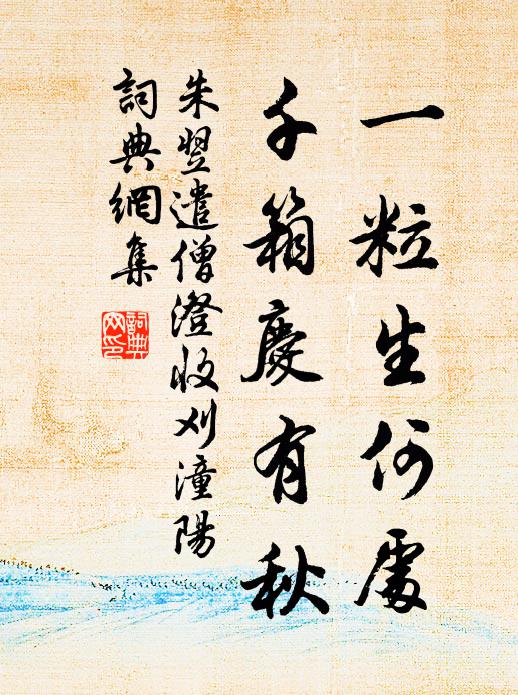 一粒生何處
千箱慶有秋
朱翌遣僧澄收刈潼陽
詞典網集
詞典網印